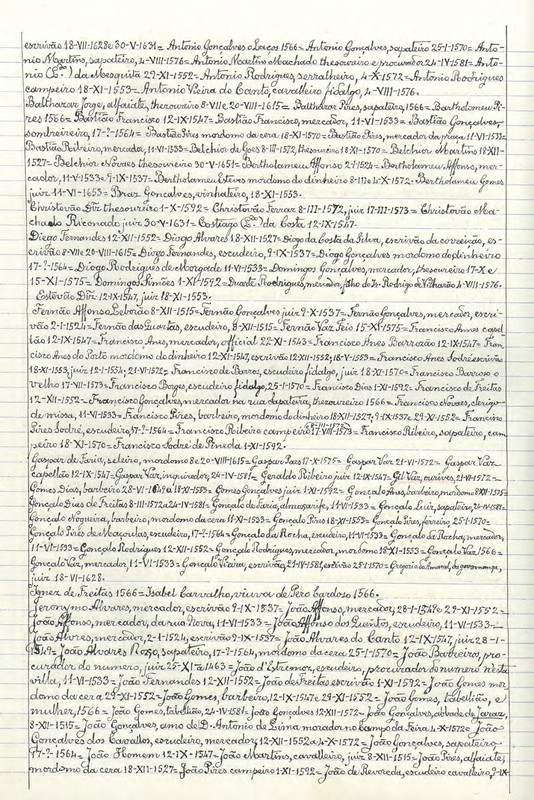 escrivão 18-VII-1628 e 30-V-1631 = Antonio Gonçalves o Leiços 1566 = Antonio Gonçalves, sapateiro 25-I-1570 = Anto-
nio Martins, sapateiro, 4-VIII-1576 = Antonio Martins Machado thesoureiro e procurador 24-IV-1581 = Anto-
nio da Mesquita 29-XI-1552 = Antonio Rodrigues, serralheiro, 4-X-1572 = Antonio Rodrigues
campeiro 18-XI-1553 = Antonio Vieira do Canto, cavalleiro fidalgo, 4-VIII-1576.
Balthazar Jorge, alfaiate, thesoureiro 8-VII e 20-VIII-1615 = Balthazar Pires, sapateiro, 1566 = Bartholomeu Pi-
res 1566 = Bastião Francisco 12-IX-1547 = Bastião Francisco, mercador, 11-VI-1533 = Bastião Gonçalves,
sombreireiro, 17-?-1564 = Bastião Pires mordomo da cera 18-XI-1570 = Bastião Pires, mercador da praça 11-VI-1533 =
Bastião Ribeiro, mercador, 11-VI-1533 = Belchior de Goes 8-III-1572, thesoureiro, 18-XI-1570 = Belchior Martins 18-XII-
1527 = Belchior Novaes thesoureiro 30-V-1651 = Bertholameu Affonso 2-I-1524 = Bertholameu Affonso, mer-
cador, 11-V-1533 e 9-IX-1537 = Bertholameu Esteves mordomo do dinheiro 8-III e 4-X-1572 = Bertholameu Gomes
juiz 11-VI-1653 = Braz Gonçalves, vinhateiro, 18-XI-1553.
Christovão Diz thesoureiro 1-X-1592 = Christovão Ferraz 8-III-1572, juiz 17-III-1573 = Christovão Ma-
chado juiz 30-V-1631 = Costiago da Costa 12-IX-1547.
Diego Fernandes 12-XII-1552 = Diogo Alvares 18-XII-1527 = Diogo da Costa da Silva, escrivão da correição, es-
crivão 8-VII e 20-VIII-1615 = Diogo Fernandes, escudeiro, 9-IX-1537 = Diogo Gonçalves mordomo do dinheiro
17-?-1564 = Diogo Rodrigues de Morgade 11-VI-1533 = Domingos Gonçalves, mercador, thesoureiro 17-X e
15-XI-1575 = Domingos Simões 1-XI-1592 = Duarte Rodrigues, mercador, filho de Rodrigo de Vilharão 4-VIII-1576.
Estevão Diz 12-IX-1547, juiz 18-XI-1553.
Fernão Affonso Leborão 8-XII-1515 = Fernão Gonçalves juiz 9-X-1537 = Fernão Gonçalves, mercador, escri-
vão 2-I-1521 = Fernão das Quartas, escudeiro, 8-XII-1515 = Fernão Vaz Feio 15-XI-1575 = Francisco Annes capel
lão 12-IX-1547 = Francisco Anes, mercador, official 22-XI-1543 = Francisco Anes Barrazão 12-IX-1547 = Fran
cisco Anes do Porto mordomo do dinheiro 12-IX-1547, escrivão 12-XII-1552, 18-V-1553 = Francisco Anes Sodré escrivão
18-XI-1553, juiz 12-I-1554, 21-VI-1572 = Francisco de Barros, escudeiro fidalgo, juiz 18-XI-1570 = Francisco Barroso o
velho 17-VII-1573 = Francisco Borges, escudeiro fidalgo, 25-I-1570 = Francisco Dias 1-XI-1592 = Francisco de Freitas
12-XII-1552 = Francisco Gonçalves, mercador na rua sapateira, thesoureiro 1566 = Francisco Novaes, clerigo
de missa, 11-VI-1533 = Francisco Pires, barbeiro, mordomo do dinheiro 18-XII-1527, 9-IX-1537 e 29-XI-1552 = Francisco
Pires Sodré, escudeiro, 17-?-1564 = Francisco Ribeiro campeiro 17-VIII-1573 = Francisco Ribeiro, sapateiro, cam
peiro 18-XI-1570 = Francisco Sodré de Pineda 1-XI-1592.
Gaspar de Faria, seleiro, mordomo 8 e 20-VIII-1615 = Gaspar Paes 17-X-1575 = Gaspar Vaz 21-VI-1572 = Gaspar Vaz
capellão 12-IX-1547 = Gaspar Vaz, inquiridor, 24-IV-1581 = Geraldo Ribeiro juiz 12-IX-1547 = Gil Vaz, ourives, 21-VI-1572 =
Gomes Dias, barbeiro 28-VI-1549 a 18-XI-1553 = Gomes Gonçalves juiz 1-XI-1592 = Gonçalo Anes, barbeiro, mordomo 8-XII-1515 =
Gonçalo Dias de Freitas 8-III-1572 a 24-IV-1581 = Gonçalo de Faria, almoxarife, 11-VI-1533 = Gonçalo Luiz, sapateiro, 24-IV-1581 =
Gonçalo Nogueira, barbeiro, mordomo da cera 11-XI-1533 = Gonçalo Pires 18-XI-1553 = Gonçalo Pires, ferreiro 25-I-1570 =
Gonçalo Pires de Maçoulas, escudeiro, 17-?-1564 = Gonçalo da Rocha, escudeiro, 11-VI-1533 = Gonçalo da Rocha, mercador,
11-VI-1533 = Gonçalo Rodrigues 12-XII-1552 = Gonçalo Rodrigues, mercador, mordomo 18-XI-1553 = Gonçalo Vaz, 1566 =
Gonçalo Vaz, mercador, 11-VI-1533 = Gonçalo Vieira, escrivão, 21-IV-1581, escrivão 25-I-1570 = Gregorio do Amaral, da governança,
juiz 18-VI-1628.
Ignez de Freitas 1566 = Isabel Carvalho, viuvas de Pero Cardoso 1566.
Jeronymo Alvares, mercador, escrivão 9-IX-1537 = João Affonso, mercador, 28-I-1549 e 29-XI-1552 =
João Affonso, mercador, da rua Nova, 11-VI-1533 = João Affonso dos Quintãs, escudeiro, 11-VI-1533 =
João Alvres, mercador, 2-I-1521, escrivão 9-IX-1537 = João Alvares do Canto 12-IX-1547, juiz 28-I-
1549 = João Alvares Rozo, sapateiro, 17-?-1564, mordomo da cera 25-I-1570 = João Barbeiro, pro-
curador do numero, juiz 25-XI a 1463 = João d'Estremoz, escudeiro, procurador do numero n'esta
villa, 11-VI-1533 = João Fernandes 12-XII-1552 = João de Freitas escrivão 1-XI-1592 = João Gomes mor
domo da cera 29-XI-1552 = João Gomes, barbeiro, 12-IX-1547 e 29-XI-1552 = João Gomes, tabellião, e
mulher, 1566 = João Gomes, tabellião, 24-IV-1581 = João Gonçalves 12-XII-1572 = João Gonçalves, abbade de Jaraz,
8-XII-1515 = João Gonçalves, amo de D. Antonio de Lima morador no campo da Feira 4-X-1572 = João
Gonçalves dos Cavallos, escudeiro, mercador, 12-XII-1552 a 4-X-1572 = João Gonçalves, sapateiro
17-?-1564 = João Homem 12-IX-1547 = João Martins, cavalleiro, juiz 8-XII-1515 = João Pires, alfaiate,
mordomo da cera 18-XII-1527 = João Pires campeiro 1-XI-1592 = João de Revoreda, escudeiro cavalleiro, 9-IX